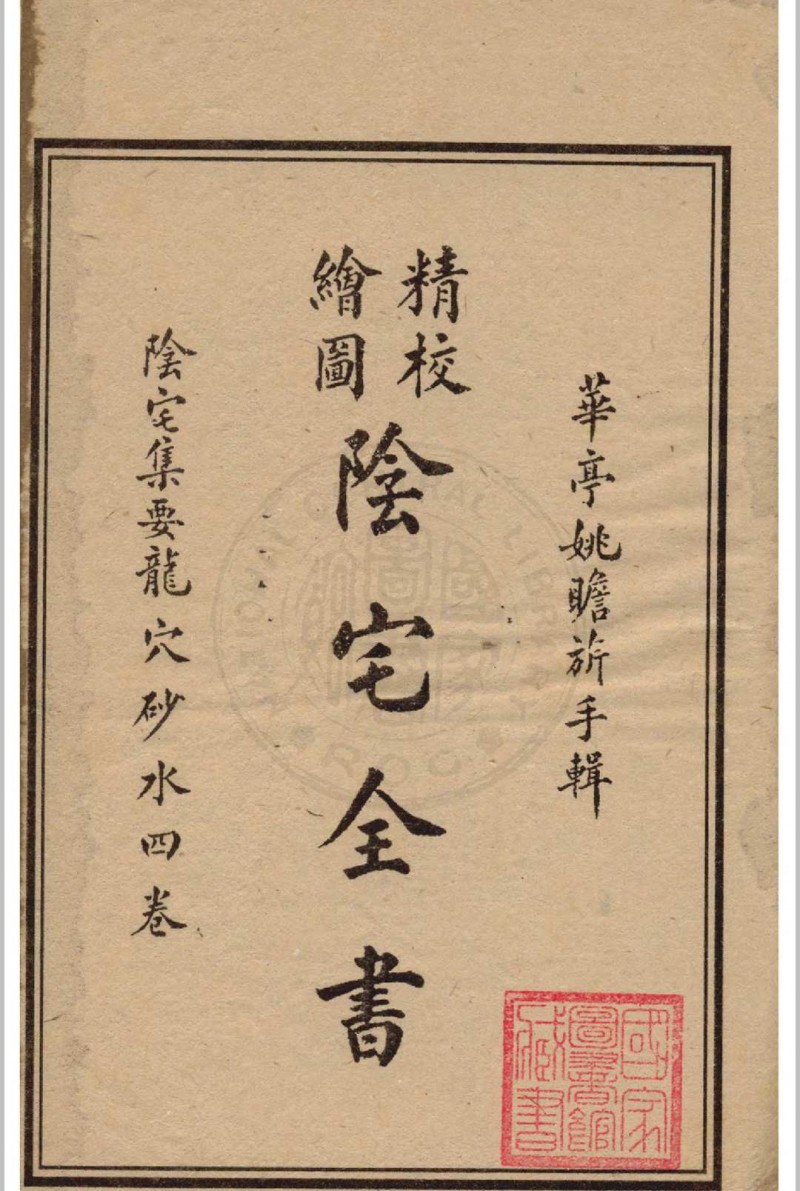 華亭姚瞻旂手輯
精校
繪圖
陰宅全書
陰宅集要龍穴砂水四卷
國家
圖書館
藏書